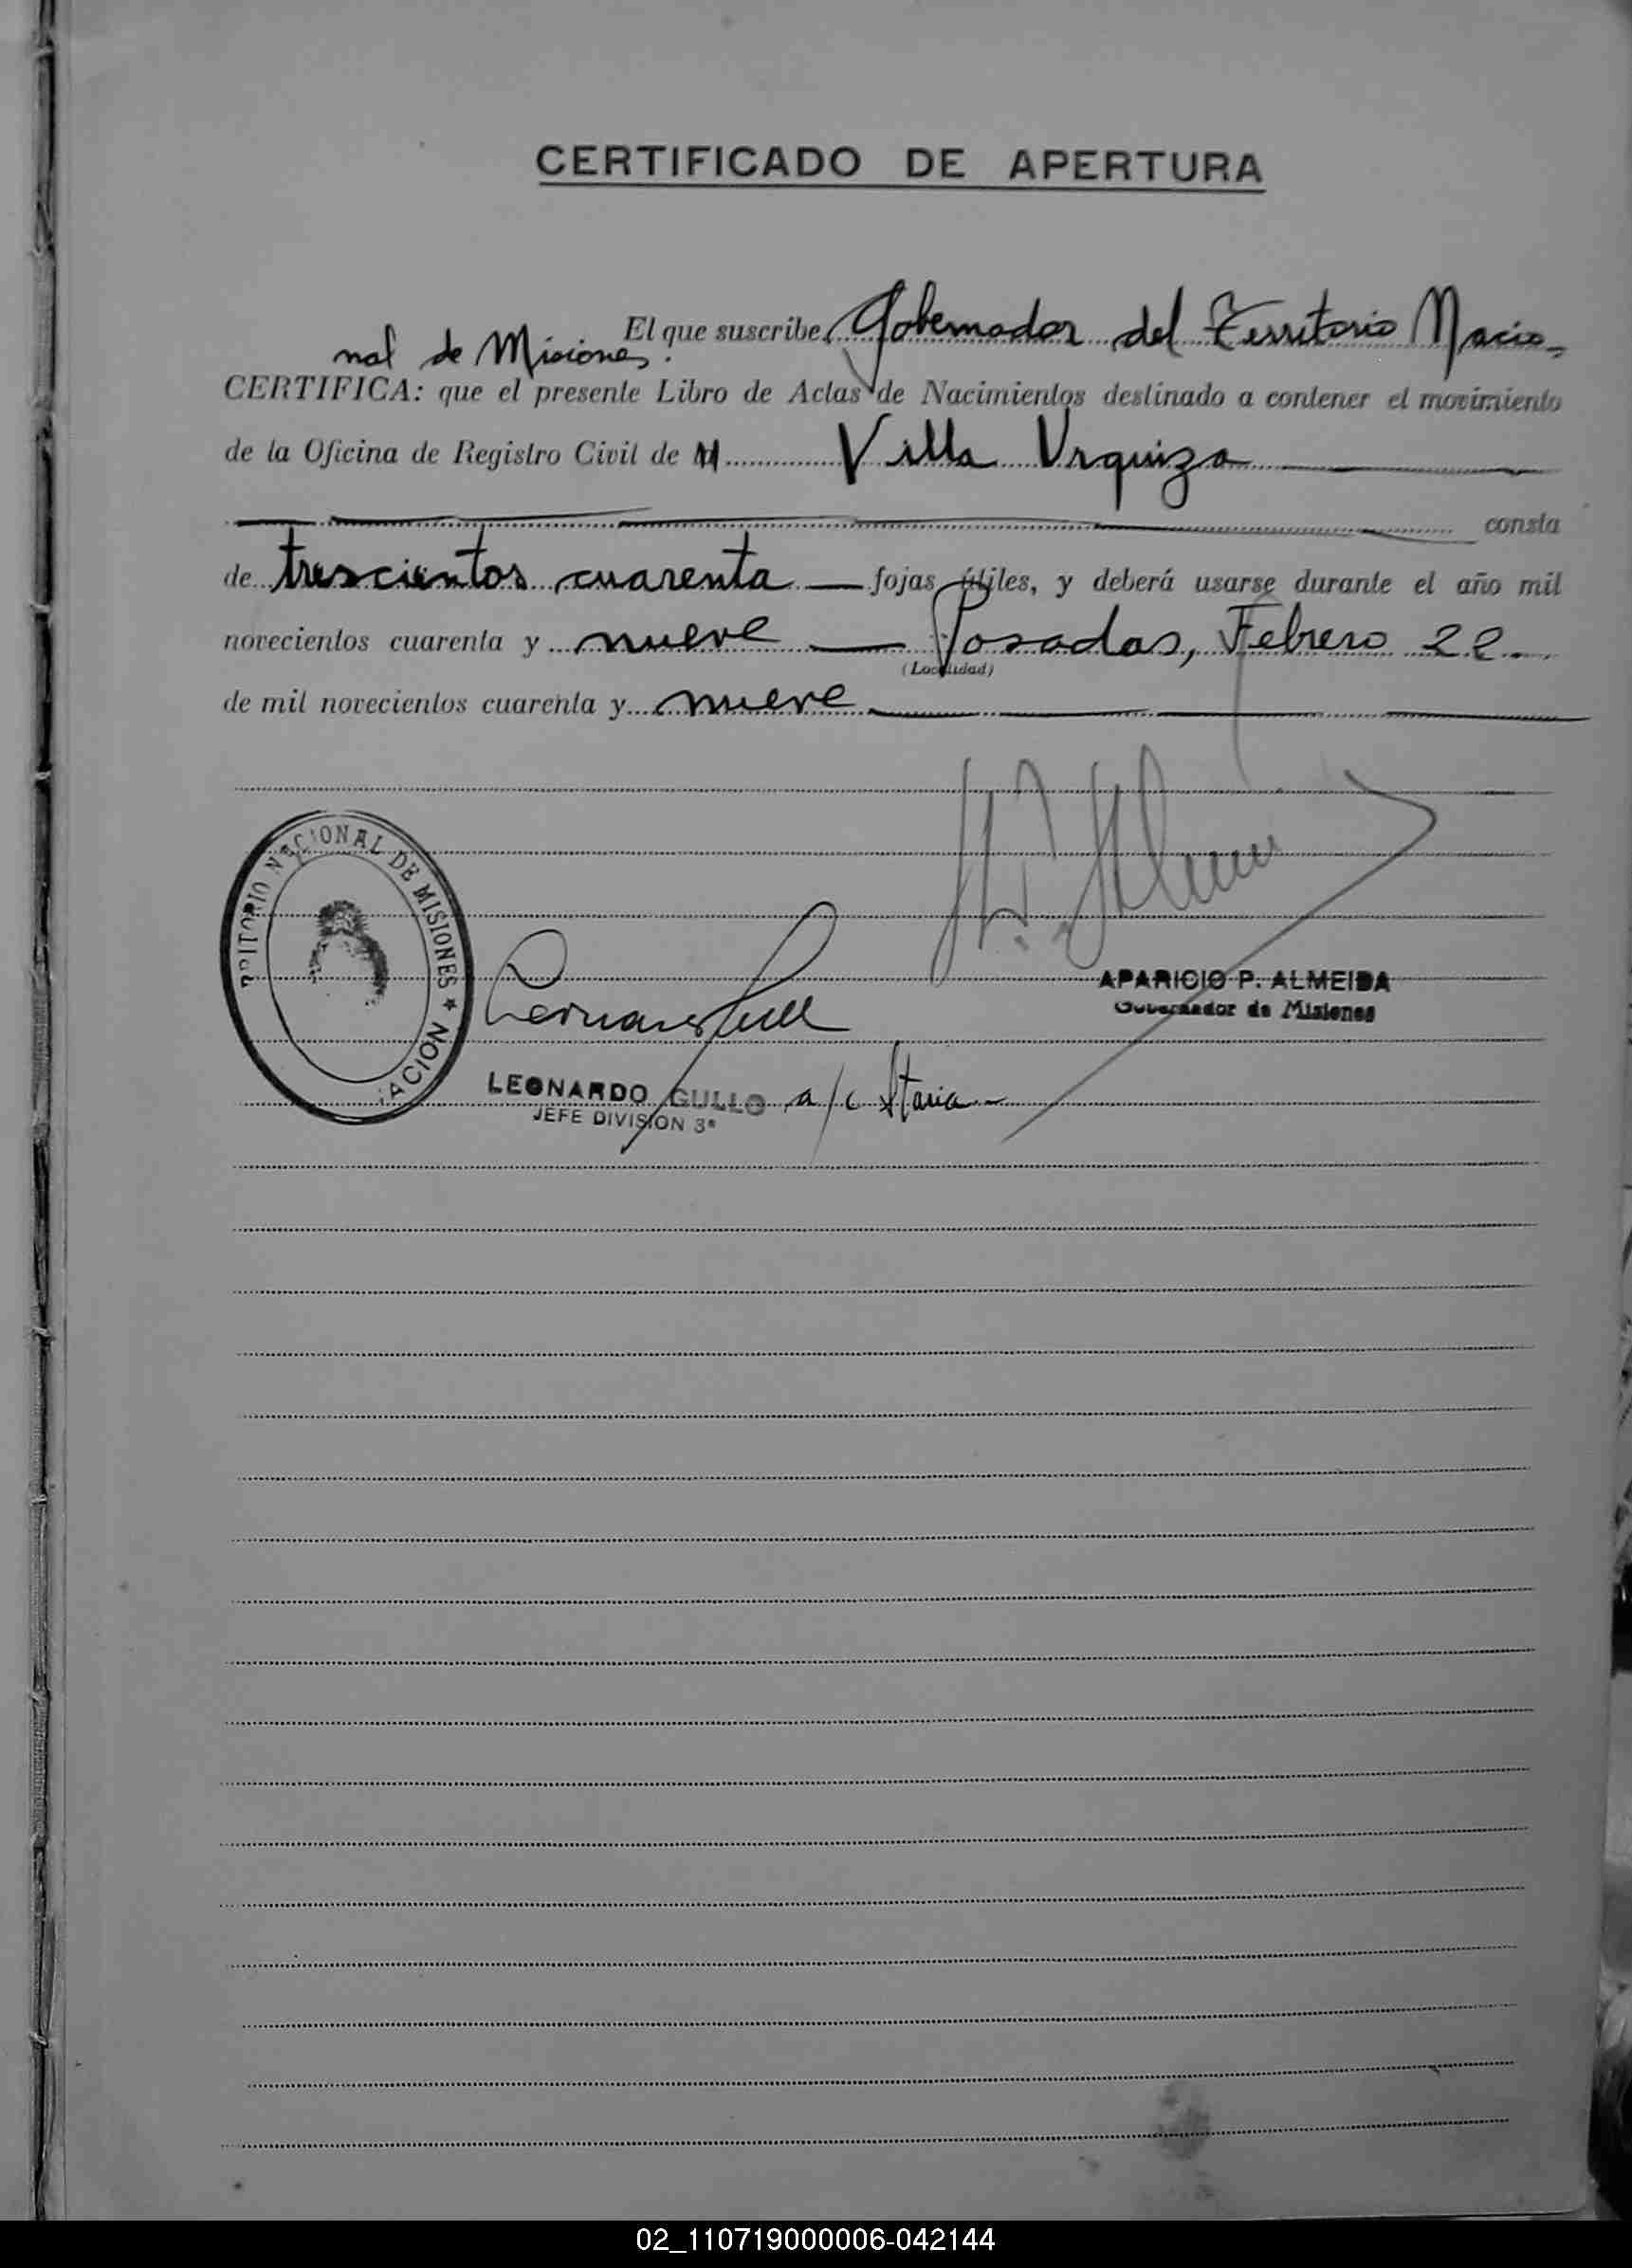 CERTIFICADO DE APERTURA
El que suscribe Gobernador del Territorio Nacio-
nal de Misiones.
CERTIFICA: que el presente Libro de Actas de Nacimientos destinado a contener el movimiento
de la Oficina de Registro Civil de Villa Urquiza
consta
de trescientos cuarenta fojas útiles, y deberá usarse durante el año mil
novecientos cuarenta y nueve Posadas, Febrero 22
(Localidad)
de mil novecientos cuarenta y nueve
RITORIO NACIONAL DE MISIONES ★
ACION
APARICIO P. ALMEIDA
Gobernador de Misiones
LEONARDO GULLO a/c Staria
JEFE DIVISION 3ª
02_110719000006-042144